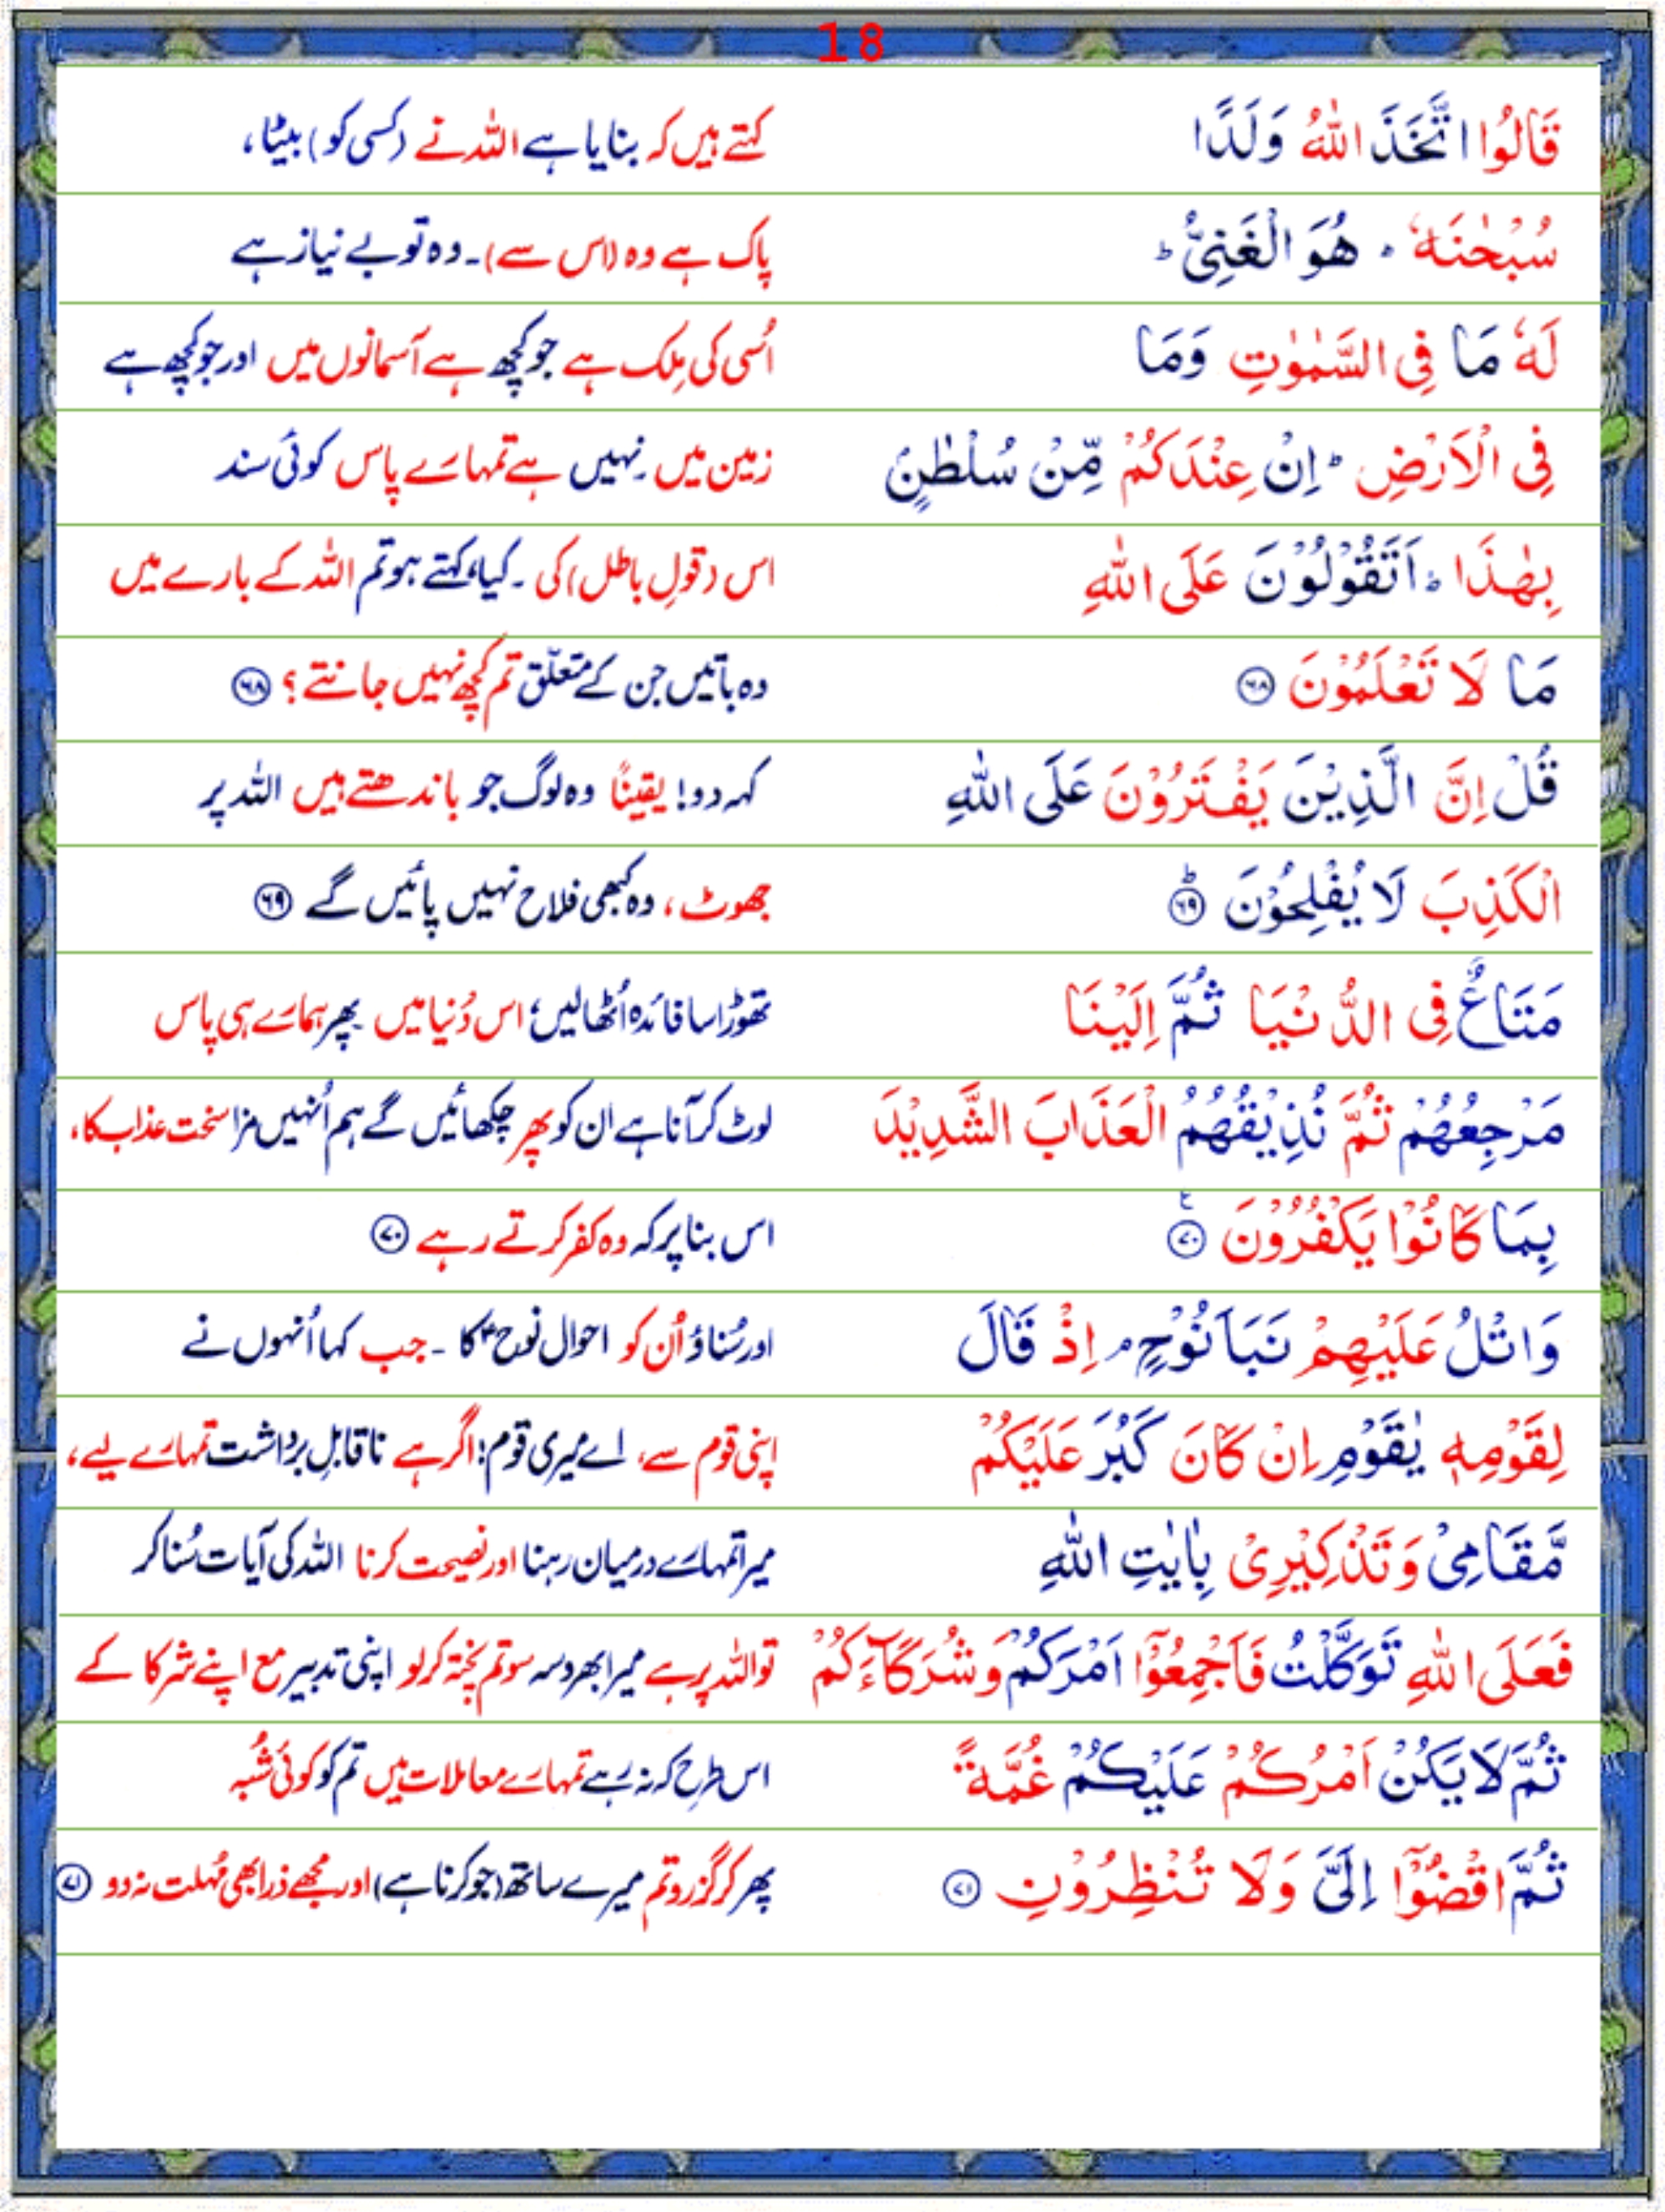 18
قَالُوا اتَّخَذَ اللّٰهُ وَلَدًا کہتے ہیں کہ بنایا ہے اللہ نے (کسی کو) بیٹا،
سُبْحٰنَهٗ ؕ هُوَ الْغَنِیُّ ؕ پاک ہے وہ (اس سے)۔ وہ تو بے نیاز ہے
لَهٗ مَا فِی السَّمٰوٰتِ وَمَا اُسی کی مِلک ہے جو کچھ ہے آسمانوں میں اور جو کچھ ہے
فِی الْاَرْضِ ؕ اِنْ عِنْدَكُمْ مِّنْ سُلْطٰنٍۭ زمین میں۔ نہیں ہے تمہارے پاس کوئی سند
بِهٰذَا ؕ اَتَقُوْلُوْنَ عَلَی اللّٰهِ اس (قولِ باطل) کی ۔ کیا، کہتے ہو تم اللہ کے بارے میں
مَا لَا تَعْلَمُوْنَ ﴿۶۸﴾ وہ باتیں جن کے متعلّق تم کچھ نہیں جانتے؟ ﴿۶۸﴾
قُلْ اِنَّ الَّذِیْنَ یَفْتَرُوْنَ عَلَی اللّٰهِ کہہ دو! یقیناً وہ لوگ جو باندھتے ہیں اللہ پر
الْكَذِبَ لَا یُفْلِحُوْنَ ﴿۶۹﴾ؕ جھوٹ، وہ کبھی فلاح نہیں پائیں گے ﴿۶۹﴾
مَتَاعٌ فِی الدُّنْیَا ثُمَّ اِلَیْنَا تھوڑا سا فائدہ اُٹھالیں؛ اس دُنیا میں پھر ہمارے ہی پاس
مَرْجِعُهُمْ ثُمَّ نُذِیْقُهُمُ الْعَذَابَ الشَّدِیْدَ لوٹ کر آنا ہے ان کو پھر چکھائیں گے ہم اُنہیں مزا سخت عذاب کا،
بِمَا كَانُوْا یَكْفُرُوْنَ ﴿۷۰﴾ۧ اس بنا پر کہ وہ کفر کرتے رہے ﴿۷۰﴾
وَاتْلُ عَلَیْهِمْ نَبَاَ نُوْحٍ ۘ اِذْ قَالَ اور سُناؤ اُن کو احوال نوح ؑ کا ۔ جب کہا اُنہوں نے
لِقَوْمِهٖ یٰقَوْمِ اِنْ كَانَ كَبُرَ عَلَیْكُمْ اپنی قوم سے، اے میری قوم! اگر ہے ناقابلِ برداشت تمہارے لیے،
مَّقَامِیْ وَتَذْكِیْرِیْ بِاٰیٰتِ اللّٰهِ میرا تمہارے درمیان رہنا اور نصیحت کرنا اللہ کی آیات سُنا کر
فَعَلَی اللّٰهِ تَوَكَّلْتُ فَاَجْمِعُوْۤا اَمْرَكُمْ وَشُرَكَآءَكُمْ تو اللہ پر ہے میرا بھروسہ سو تم پختہ کرلو اپنی تدبیر مع اپنے شرکا کے
ثُمَّ لَا یَكُنْ اَمْرُكُمْ عَلَیْكُمْ غُمَّةً اس طرح کہ نہ رہے تمہارے معاملات میں تم کو کوئی شُبہ
ثُمَّ اقْضُوْۤا اِلَیَّ وَلَا تُنْظِرُوْنِ ﴿۷۱﴾ پھر کر گزرو تم میرے ساتھ (جو کرنا ہے) اور مجھے ذرا بھی مُہلت نہ دو ﴿۷۱﴾